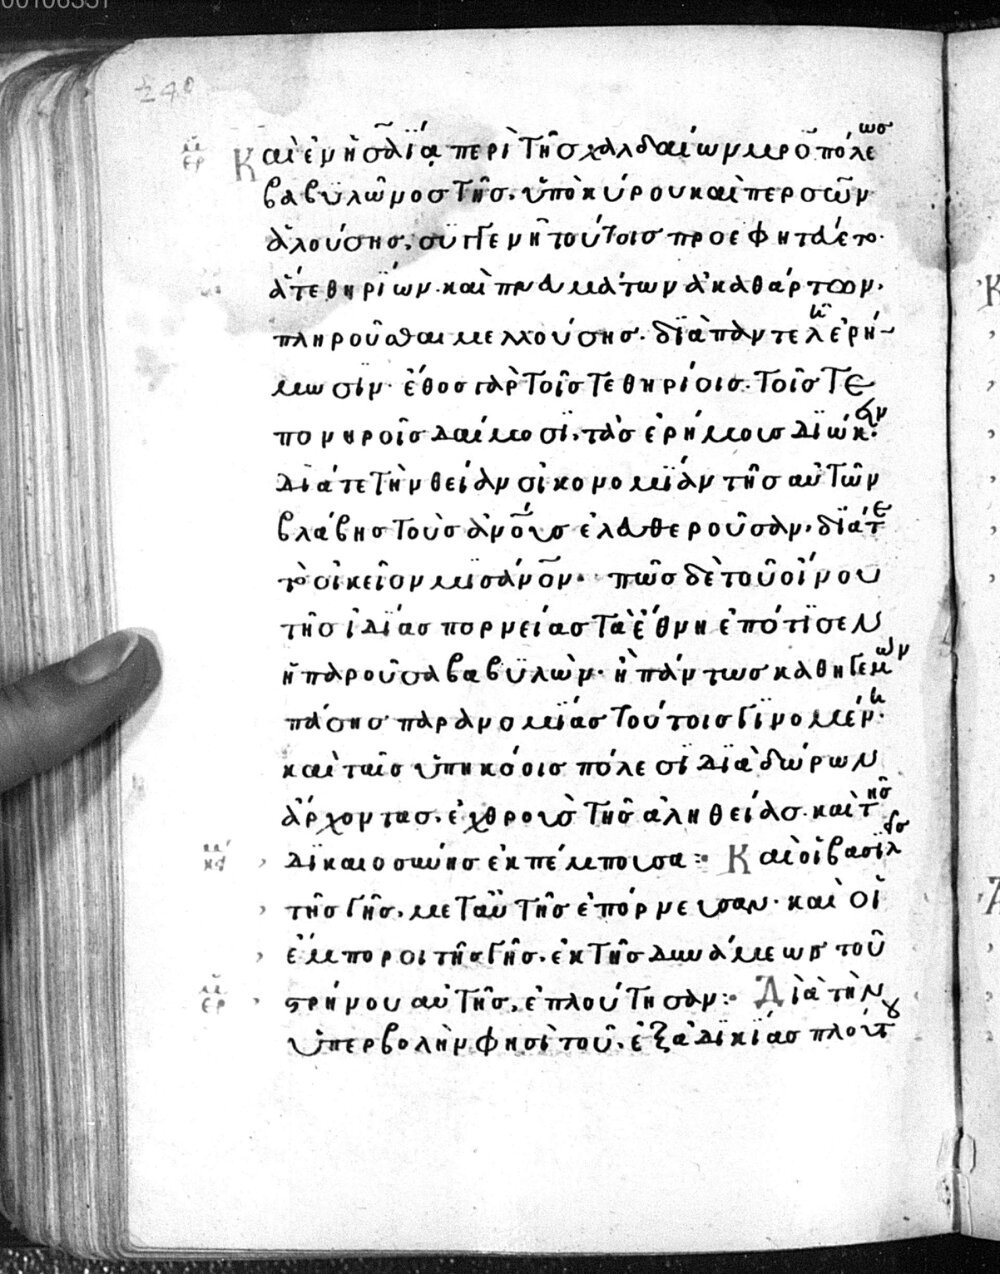 00100331
240
Καὶ ἐν ἡσαΐᾳ περὶ τῆς χαλδαίων μροπόλεως
βαβυλῶνος τῆς, ὑπὸ κύρου καὶ περσῶν
ἁλούσης, συγγενῆ τούτοις προεφητεύετο·
ἅτε θηρίων· καὶ πνάμάτων ἀκαθάρτων,
πληροῦσθαι μελλούσης· διὰ παντελῆ ἐρή-
μωσιν· ἔθος γὰρ τοῖς τε θηρίοις· τοῖς τε
πονηροῖς δαίμοσι, τὰς ἐρήμους διώκειν·
διά τε τὴν θείαν οἰκονομίαν τῆς αὐτῶν
βλάβης τοὺς ἀνους ἐλευθεροῦσαν, διά τε
τὸ οἰκεῖον μισάνον· πῶς δὲ τοῦ οἴνου
τῆς ἰδίας πορνείας τὰ ἔθνη ἐπότισεν
ἡ παροῦσα βαβυλὼν· ἢ πάντως καθηγεμὼν
πάσης παρανομίας τούτοις γινομένη·
καὶ ταῖς ὑπηκόοις πόλεσι διὰ δώρων
ἄρχοντας, ἐχθροὺς τῆς ἀληθείας· καὶ τῆς
δικαιοσύνης ἐκπέμπουσα: Καὶ οἱ βασιλεῖς
τῆς γῆς, μετ αὐτῆς ἐπόρνευσαν· καὶ οἱ
ἔμποροι τῆς γῆς, ἐκ τῆς δυνάμεως τοῦ
στρήνου αὐτῆς, ἐπλούτησαν: Διὰ τὴν
ὑπερβολήν φησι τοῦ, ἐξ ἀδικίας πλούτου